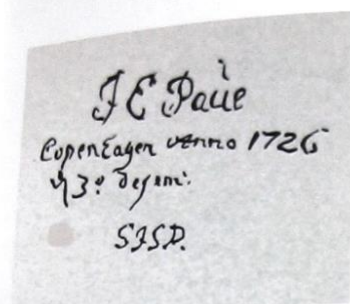 J E Paüe
Copenhagen anno 1726
d 3º desem:
SJSD.